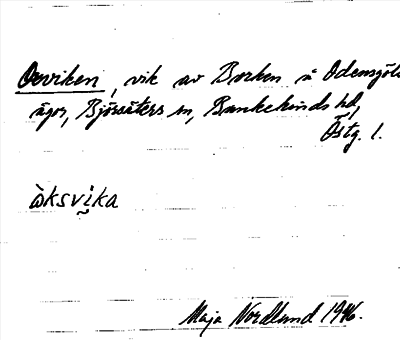 Oxviken, vik av Borken å Odensgöls
ägor, Björsäters sn, Bankekinds hd,
Östg. l.
ὼksvi̬ka
Maja Nordlund 1946.